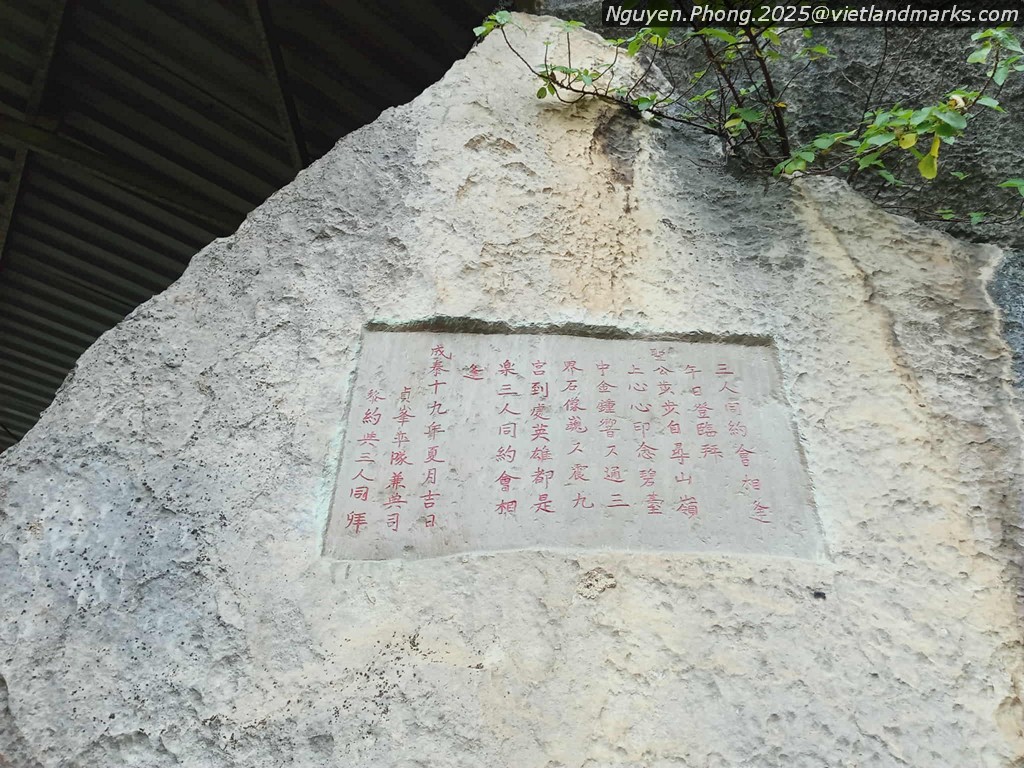 Nguyen.Phong.2025@vietlandmarks.com
三人同約會相逢
午日登臨拜
公步步自尋山嶺
上心心印念碧臺
中金鐘響又通三
界石像巍又震九
宮到處英雄都是
楽三人同約會相
逢
成泰十九年夏月吉日
貞峯卒隊兼典司
黎約共三人同拜